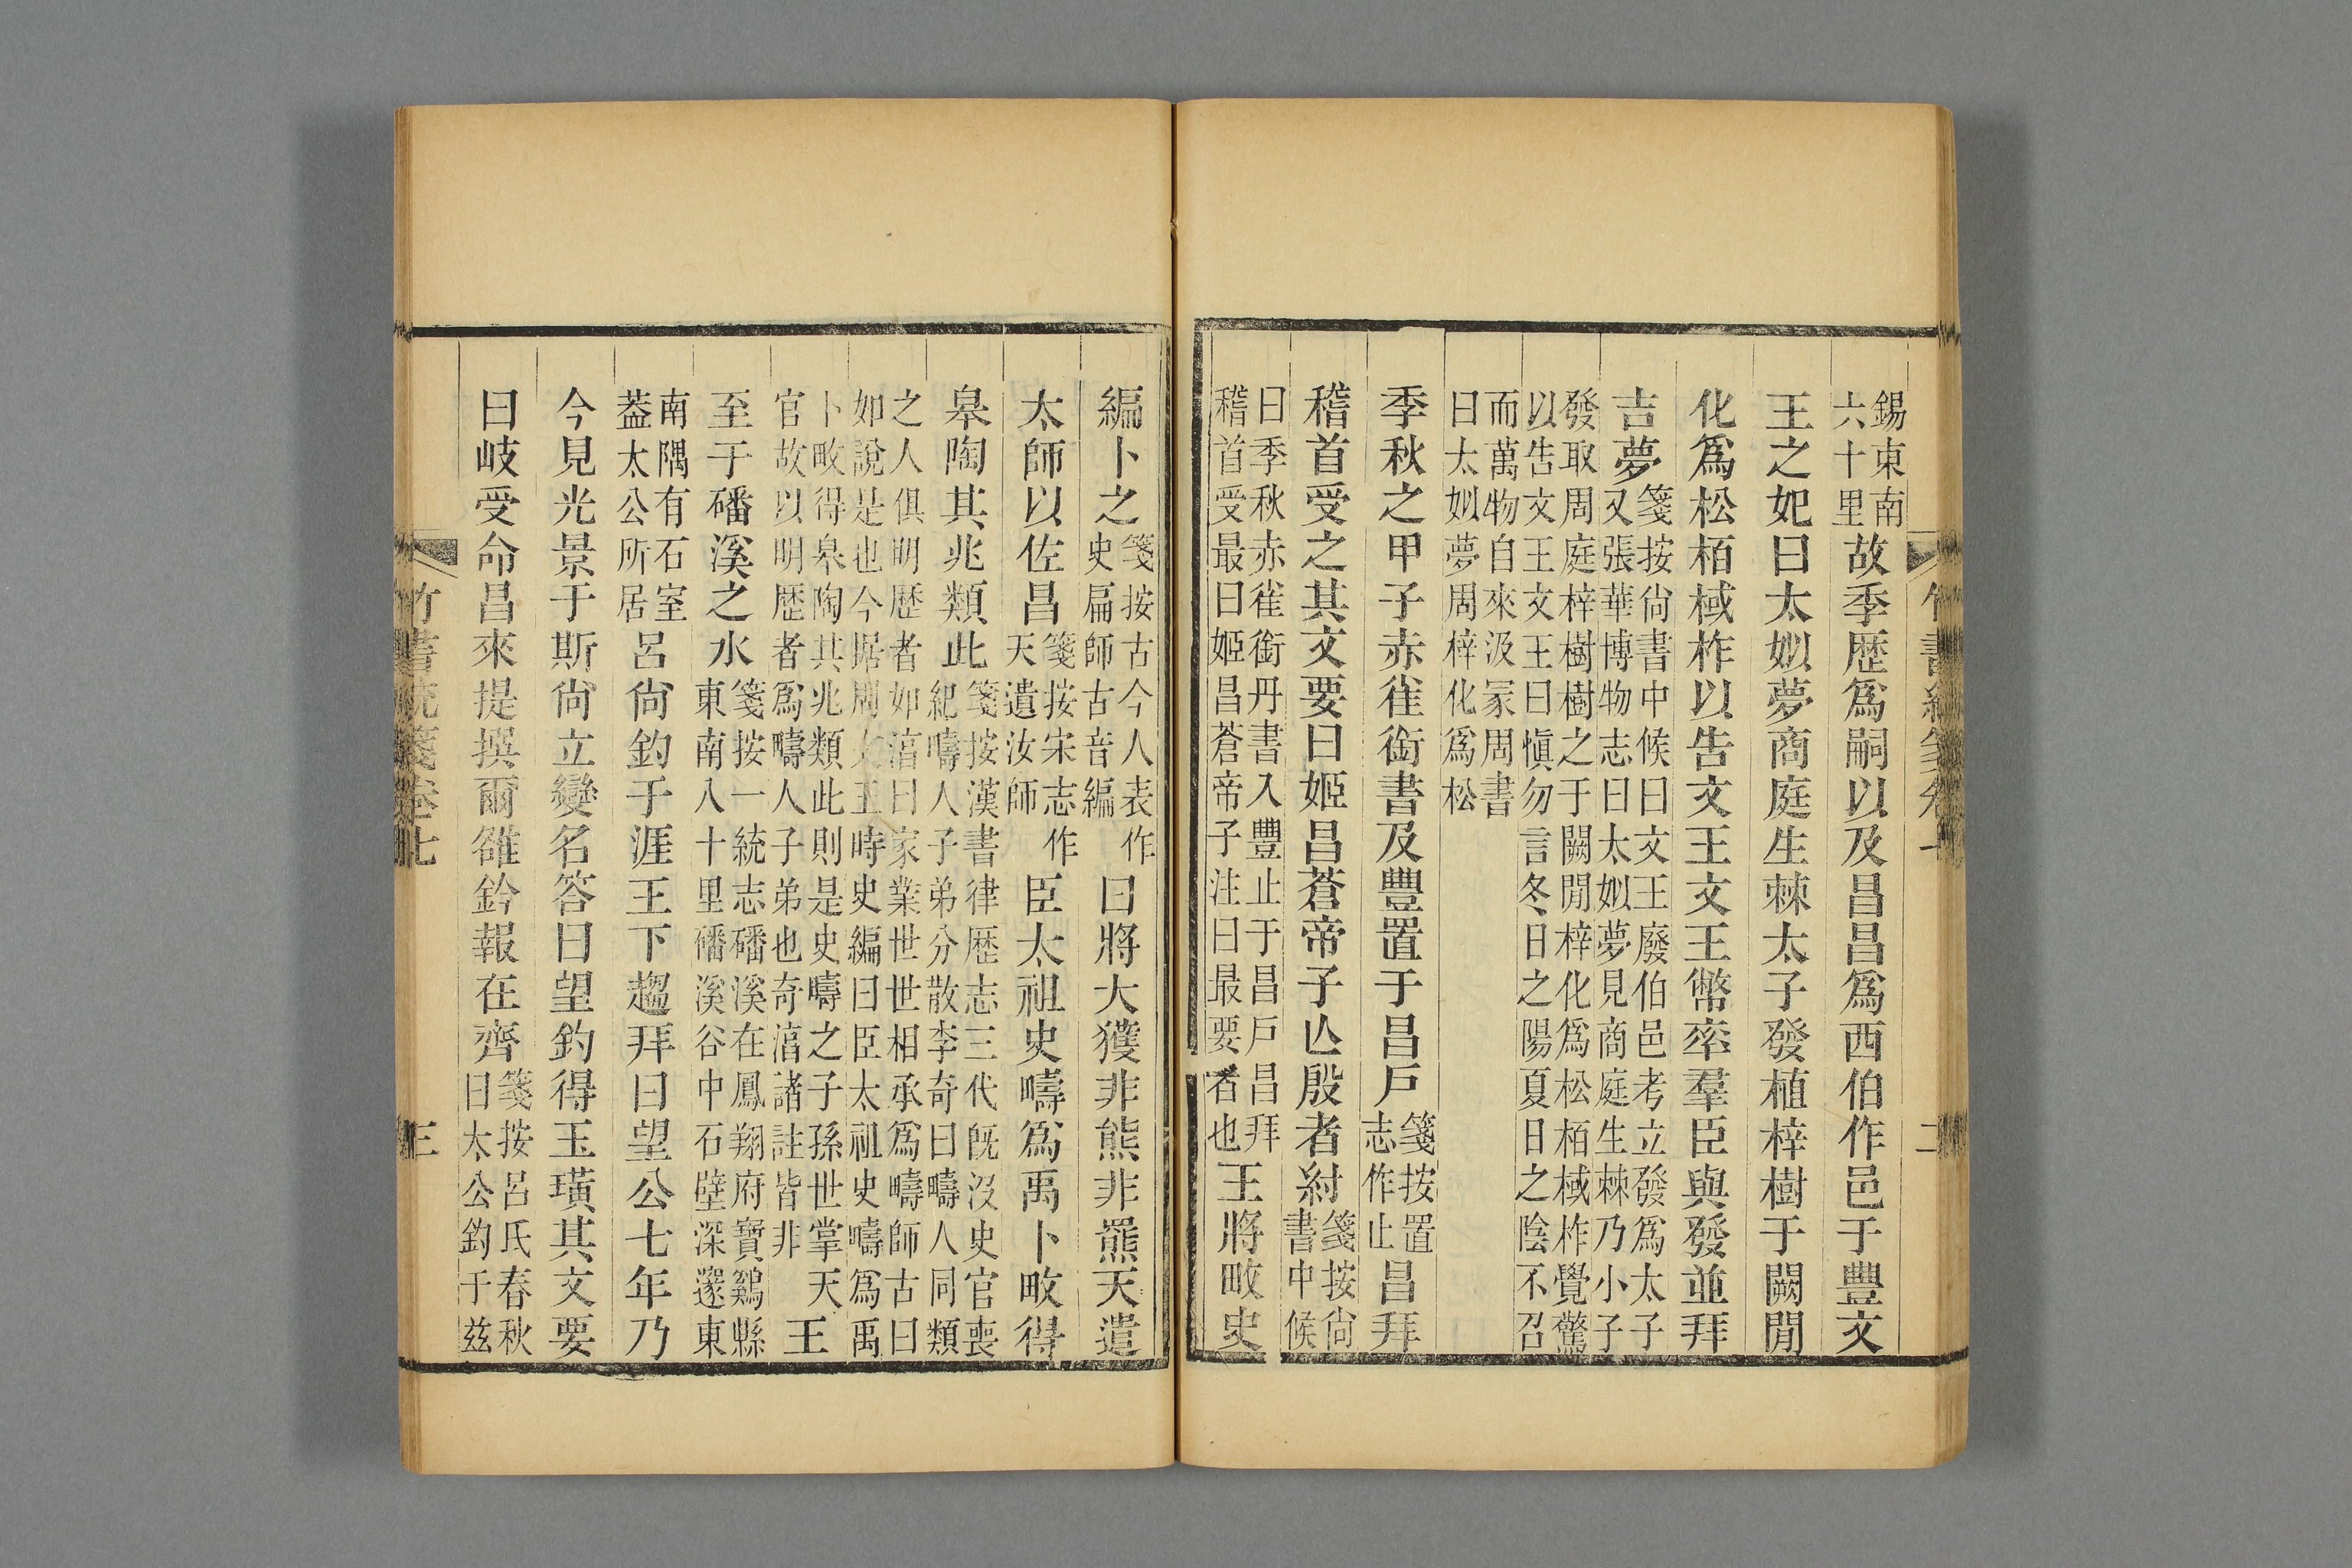 竹書統箋卷七 二
錫東南
六十里
故季歷爲嗣以及昌昌爲西伯作邑于豐文
王之妃曰太姒夢商庭生棘太子發植梓樹于闕閒
化爲松栢棫柞以告文王文王幣率羣臣與發並拜
吉夢
箋按尙書中候曰文王廢伯邑考立發爲太子
又張華博物志曰太姒夢見商庭生棘乃小子
發取周庭梓樹樹之于闕閒梓化爲松栢棫柞覺驚
以告文王文王曰愼勿言冬日之陽夏日之陰不召
而萬物自來汲冢周書
曰太姒夢周梓化爲松
季秋之甲子赤雀銜書及豐置于昌戶
箋按置
志作止
昌拜
稽首受之其文要曰姬昌蒼帝子亾殷者紂
箋按尙
書中候
曰季秋赤雀銜丹書入豐止于昌戶昌拜
稽首受最曰姬昌蒼帝子注曰最要者也
王將畋史
編卜之
箋按古今人表作
史扁師古音編
曰將大獲非熊非羆天遣
太師以佐昌
箋按宋志作
天遺汝師
臣太祖史疇爲禹卜畋得
皋陶其兆類此
箋按漢書律歷志三代旣沒史官喪
紀疇人子弟分散李奇曰疇人同類
之人俱明歷者如淳曰家業世世相承爲疇師古曰
如說是也今据周文王時史編曰臣太祖史疇爲禹
卜畋得皋陶其兆類此則是史疇之子孫世掌天
官故以明歷者爲疇人子弟也奇淳諸註皆非
王
至于磻溪之水
箋按一統志磻溪在鳳翔府寶鷄縣
東南入十里磻溪谷中石壁深邃東
南隅有石室
葢太公所居
呂尙釣于涯王下趨拜曰望公七年乃
今見光景于斯尙立變名答曰望釣得玉璜其文要
曰岐受命昌來提撰爾雒鈐報在齊
箋按呂氏春秋
曰太公釣于兹
竹書統箋卷七 三